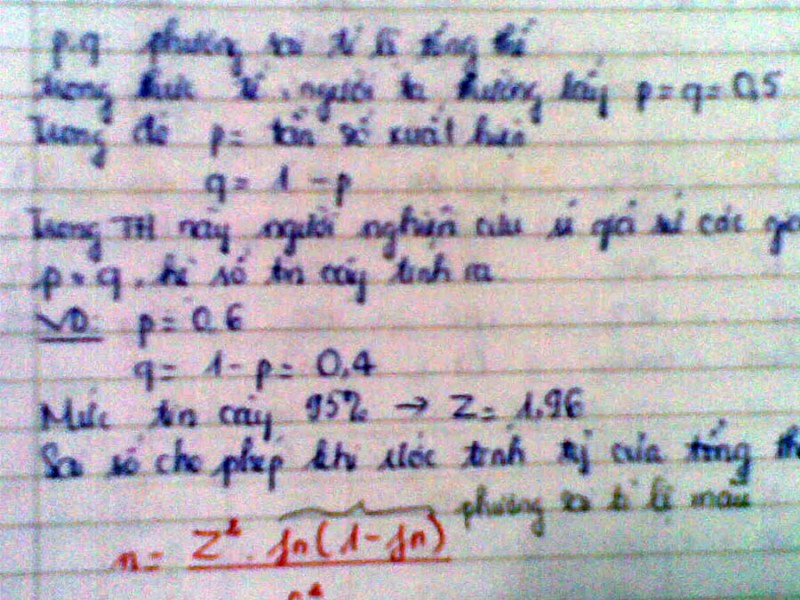 p.q phương sai tỉ lệ tổng thể
trong thực tế, người ta thường lấy p = q = 0,5
Trong đó p = tần số xuất hiện
q = 1 - p
Trong TH này người nghiên cứu sẽ giả sử các
p, q, hệ số tin cậy tính ra
VD: p = 0.6
q = 1 - p = 0,4
Mức tin cậy 95% → Z = 1,96
Sai số cho phép khi ước tính tỷ của tổng
phương sai tỉ lệ mẫu
n = Z². fn(1-fn)